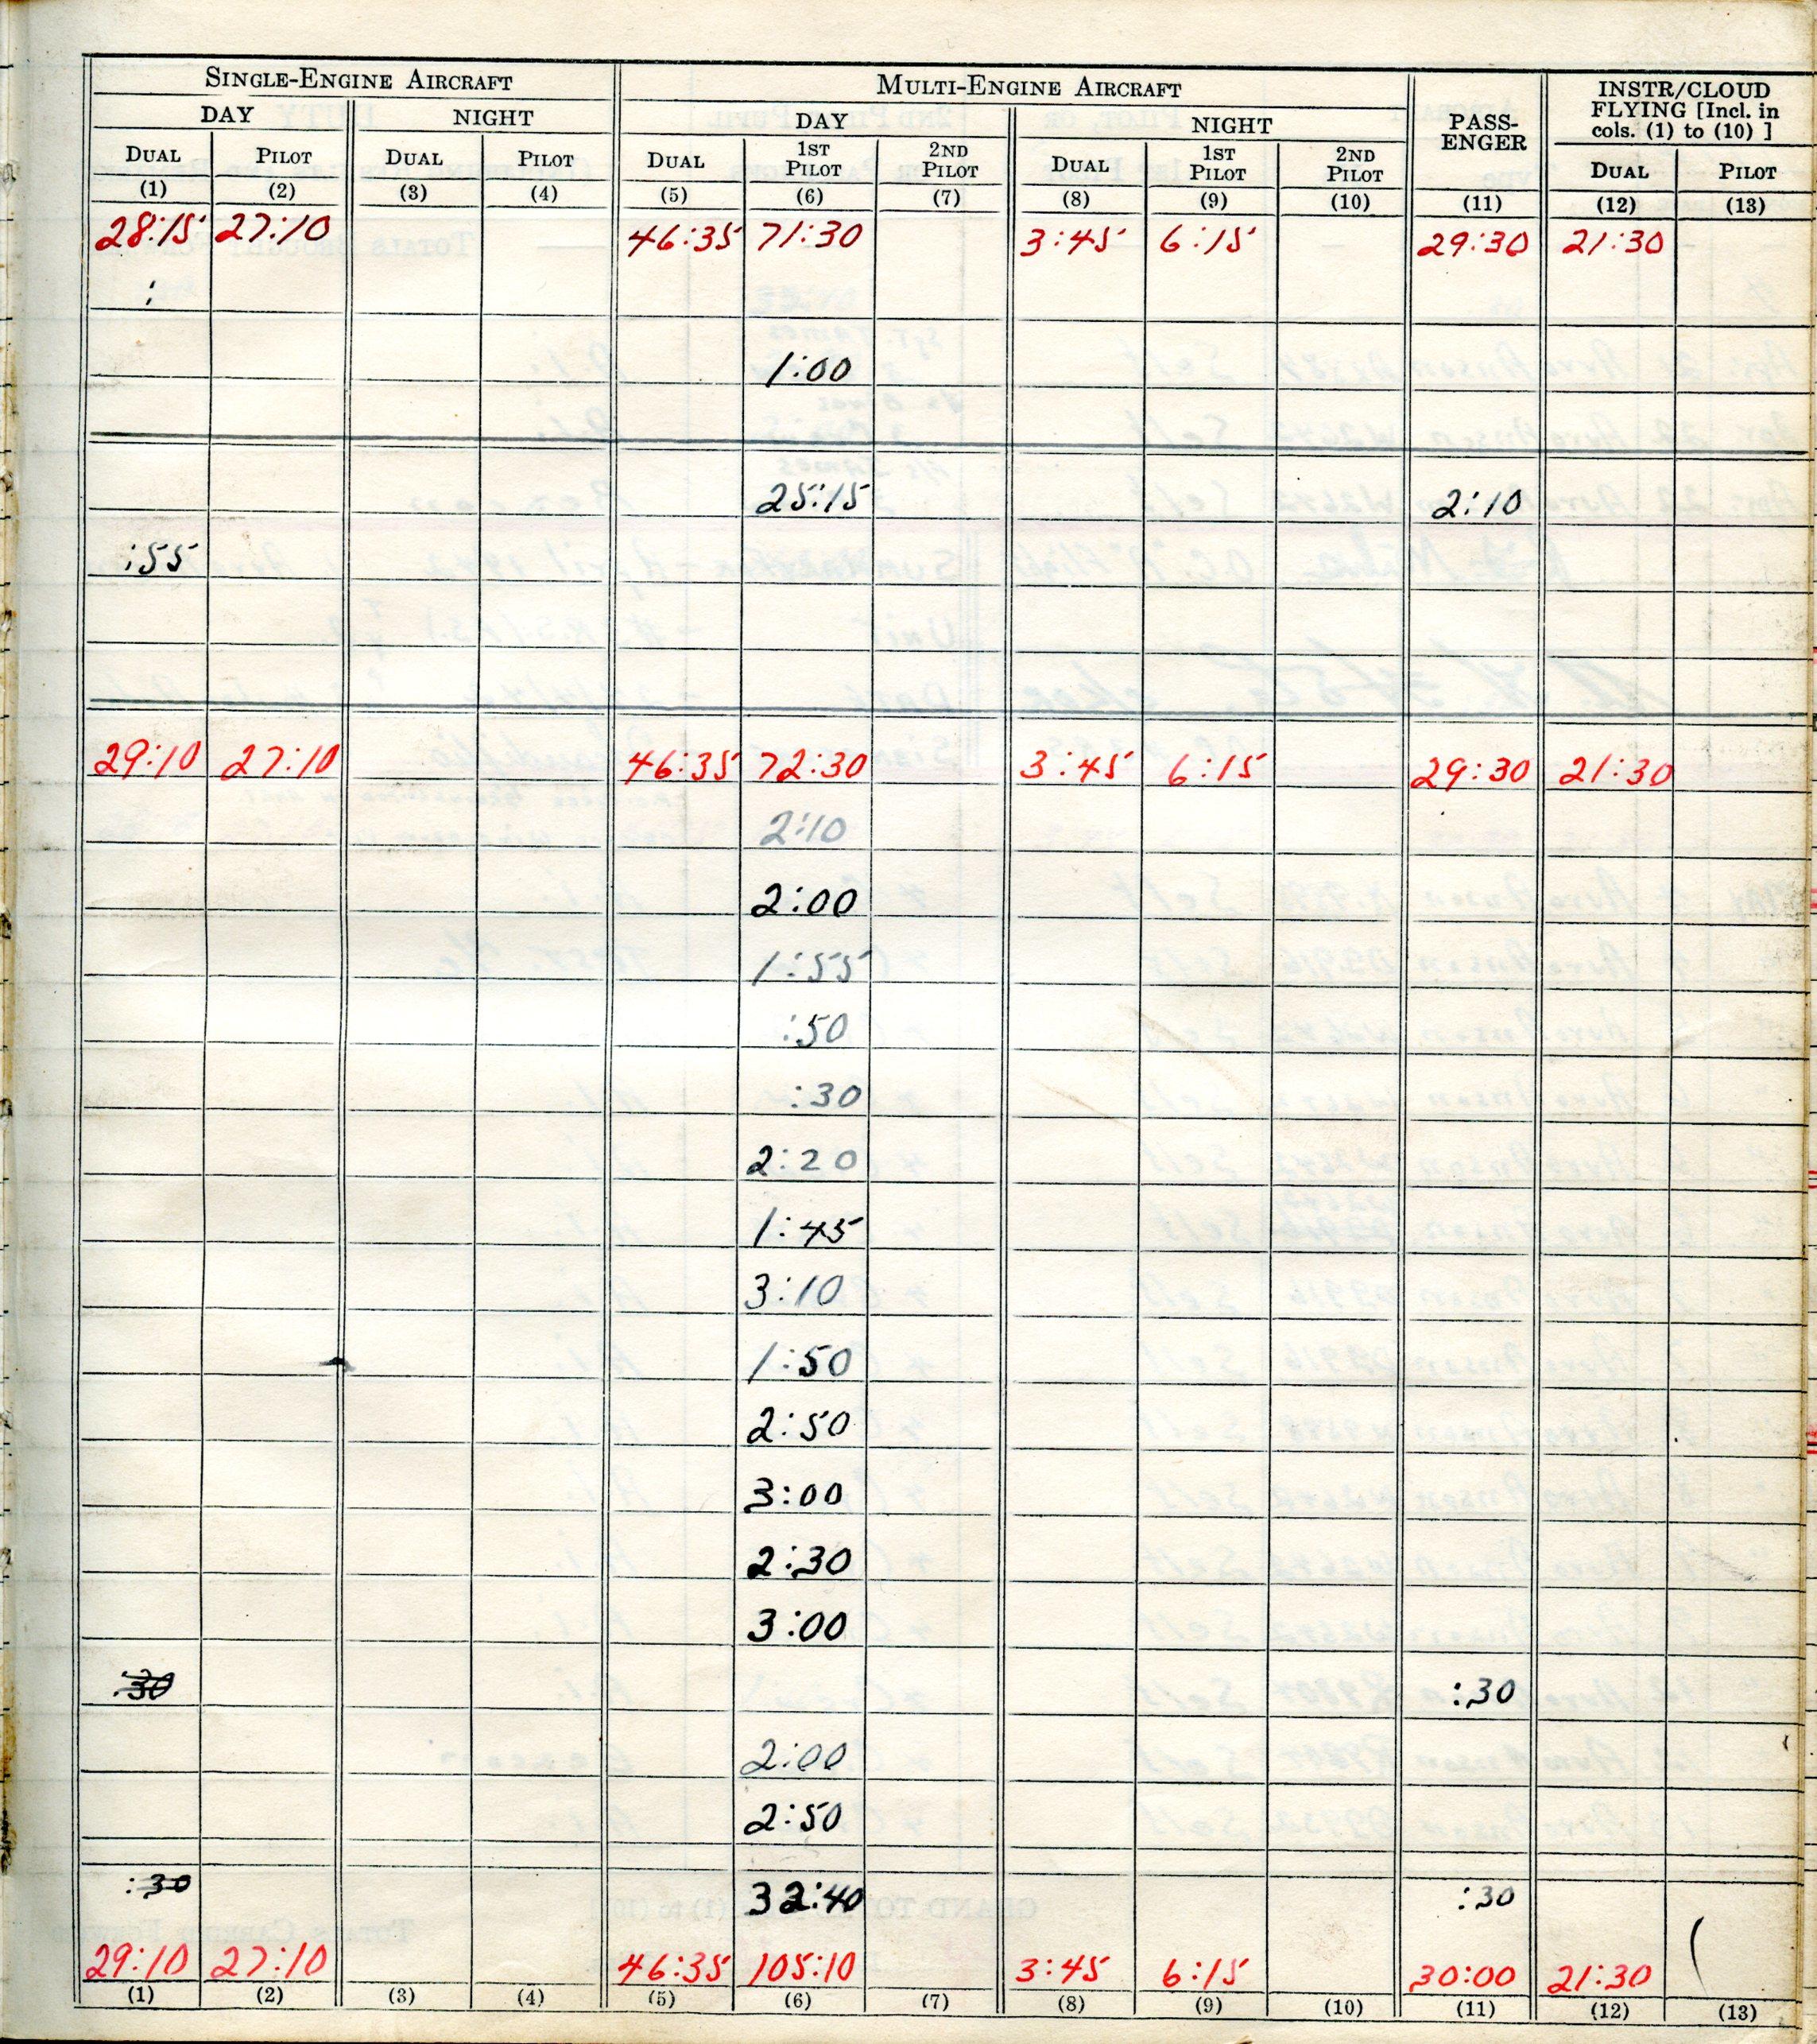 SINGLE-ENGINE AIRCRAFT MULTI-ENGINE AIRCRAFT PASS-ENGER INSTR/CLOUD FLYING [Incl. in cols. (1) to (10) ]
DAY NIGHT DAY NIGHT
DUAL PILOT DUAL PILOT DUAL 1ST PILOT 2ND PILOT DUAL 1ST PILOT 2ND PILOT DUAL PILOT
(1) (2) (3) (4) (5) (6) (7) (8) (9) (10) (11) (12) (13)
28:15 27:10 46:35 71:30 3:45 6:15 29:30 21:30
:
1:00
25:15 2:10
:55
29:10 27:10 46:35 72:30 3:45 6:15 29:30 21:30
2:10
2:00
1:55
:50
:30
2:20
1:45
3:10
1:50
2:50
3:00
2:30
3:00
:30 :30
2:00
2:50
:30 32:40 :30
29:10 27:10 46:35 105:10 3:45 6:15 30:00 21:30
(1) (2) (3) (4) (5) (6) (7) (8) (9) (10) (11) (12) (13)